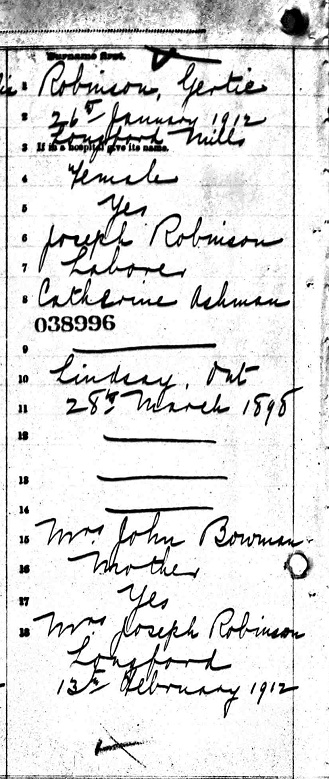 Surname first.
1 Robinson, Gertie
2 26th January 1912
Longford Mills
3 If in a hospital give its name.
4 Female
5 Yes
6 Joseph Robinson
7 Laborer
8 Catherine Ashman
038996
9
10 Lindsay, Ont
11 28th March 1898
12
13
14
15 Mrs John Bowman
16 Mother
17 Yes
18 Mrs Joseph Robinson
Longford
13th February 1912